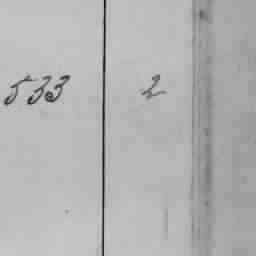 533 2